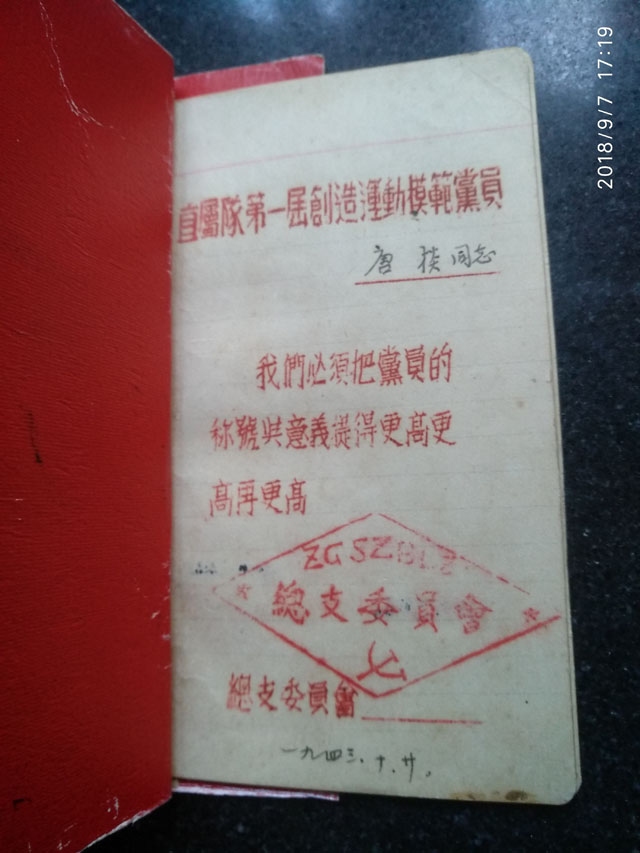 2018/9/7 17:19
直屬隊第一屆創造運動模範黨員
唐 同志
我們必須把黨員的
称號与意義提得更高更
高再更高
ZGSZ
總支委員會
總支委員會
一九四三.十.廿.